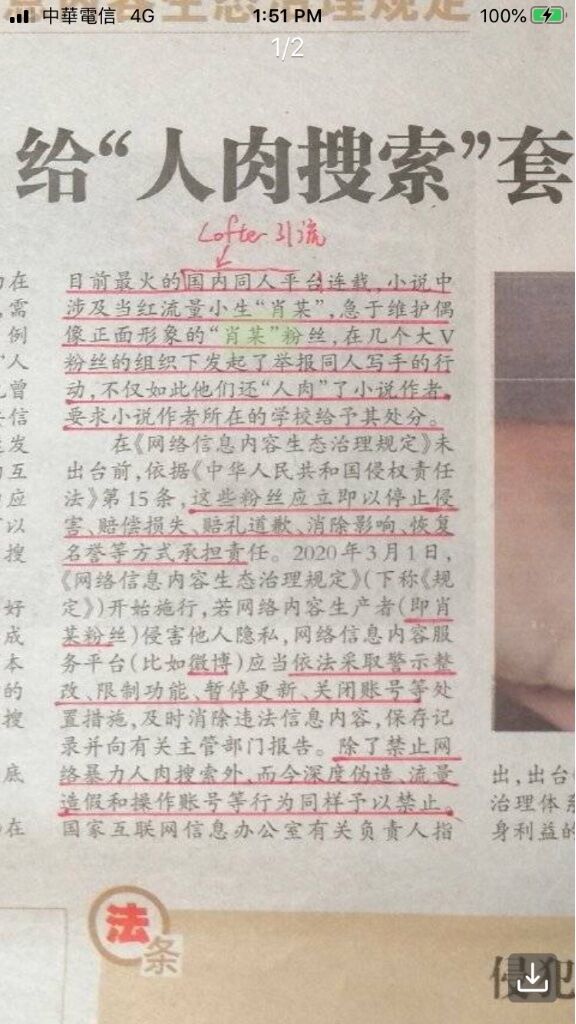 中華電信 4G 1:51 PM 100%
1/2
给“人肉搜索”套
Lofter引流
目前最火的国内同人平台连载,小说中
涉及当红流量小生“肖某”,急于维护偶
像正面形象的“肖某”粉丝,在几个大V
粉丝的组织下发起了举报同人写手的行
动,不仅如此他们还“人肉”了小说作者,
要求小说作者所在的学校给予其处分。
在《网络信息内容生态治理规定》未
出台前,依据《中华人民共和国侵权责任
法》第15条,这些粉丝应立即以停止侵
害、赔偿损失、赔礼道歉、消除影响、恢复
名誉等方式承担责任。2020年3月1日,
《网络信息内容生态治理规定》(下称《规
定》)开始施行,若网络内容生产者(即肖
某粉丝)侵害他人隐私,网络信息内容服
务平台(比如微博)应当依法采取警示整
改、限制功能、暂停更新、关闭账号等处
置措施,及时消除违法信息内容,保存记
录并向有关主管部门报告。除了禁止网
络暴力人肉搜索外,而今深度伪造、流量
造假和操作账号等行为同样予以禁止。
国家互联网信息办公室有关负责人指
出,出台
治理体系
身利益的
法
条
侵犯